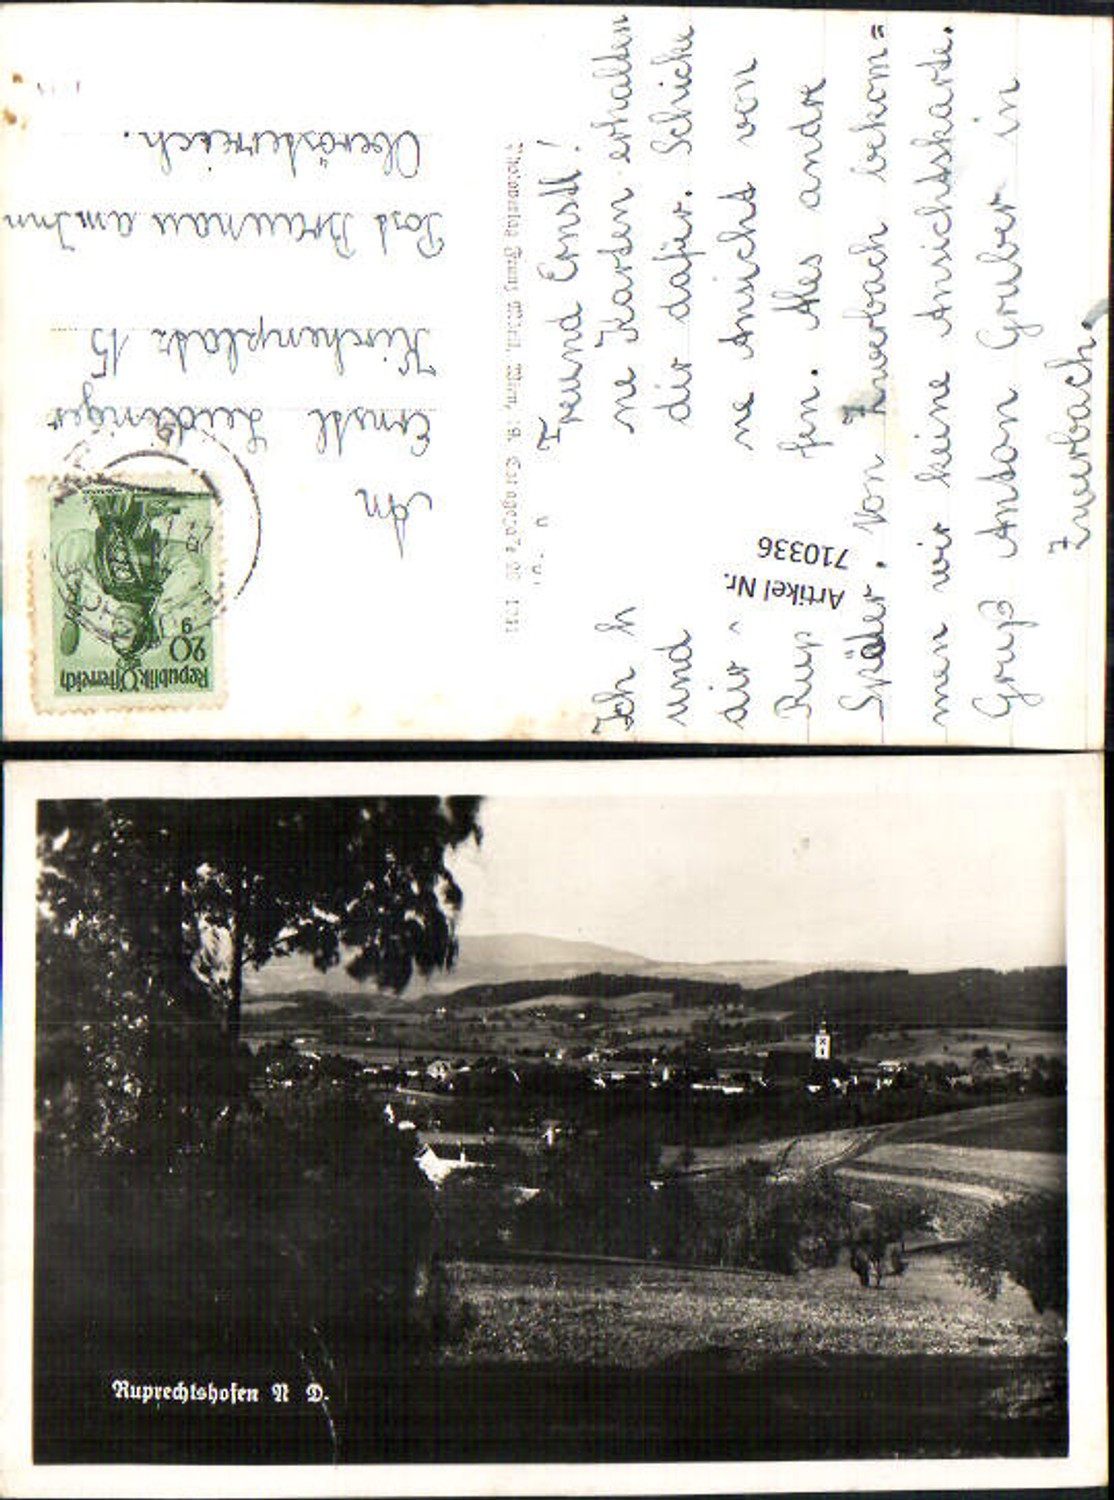 Freund Ernstl!
Ich h ne Karten erhalten
und dir dafür. Schicke
dir ne Ansicht von
Rup fen. Alles andre
Später. Von Zwerbach bekom=
men wir keine Ansichtskarte.
Gruß Anton Gruber in
Zwerbach.
Artikel Nr.
710336
An
Ernstl
Kirchenplatz 15
Post Braunau am Inn
Oberösterreich.
Republik Österreich
20 g
Ruprechtshofen N D.